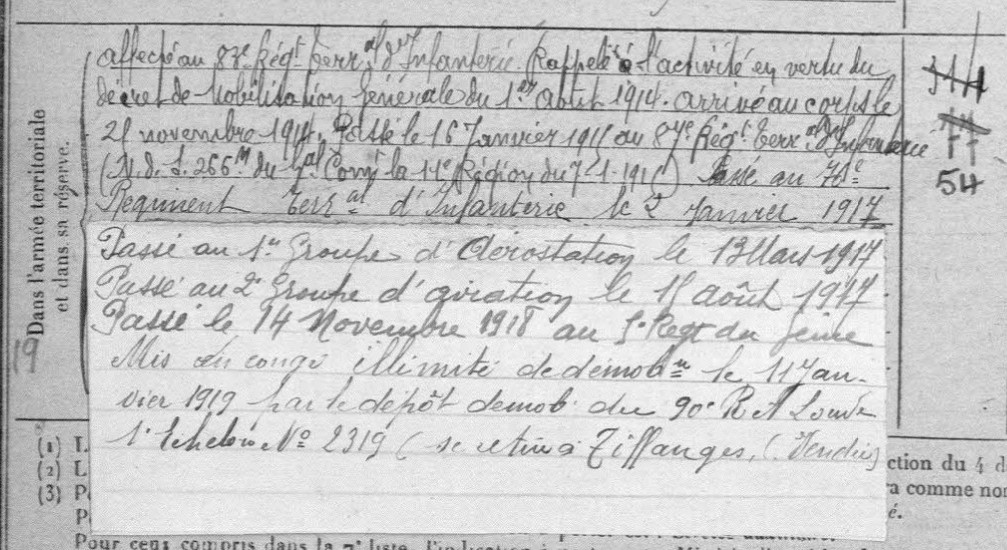 Dans l'armée territoriale
et dans sa réserve.
affecté au 83e Régt Terral d'Infanterie. Rappelé à l'activité en vertu du
décret de Mobilisation Générale du 1er Août 1914. arrivé au corps le
21 novembre 1914. Passé le 16 Janvier 1915 au 87e Régt Terral d'Infanterie
(N. d. S. 266 du Gal Comt la 14e Région du 7-1-191) Passé au 78e
Régiment Terral d'Infanterie le 2 Janvier 1917
Passé au 1er Groupe d'Aérostation le 13 Mars 1917
Passé au 2e Groupe d'aviation le 15 août 1917.
Passé le 14 Novembre 1918 au 5e Régt du Génie
Mis en congé illimité de démobon le 11 Jan-
vier 1919 par le dépôt démob. du 90e R A Lourde
1er Echelon No 2319 (se retire à Tiffauges, (Vendée)
54
19
(1) L
(2) L
(3) P
P
ction du 4 d
a comme nor
é.
Pour ceux compris dans la 7e liste, l'indication